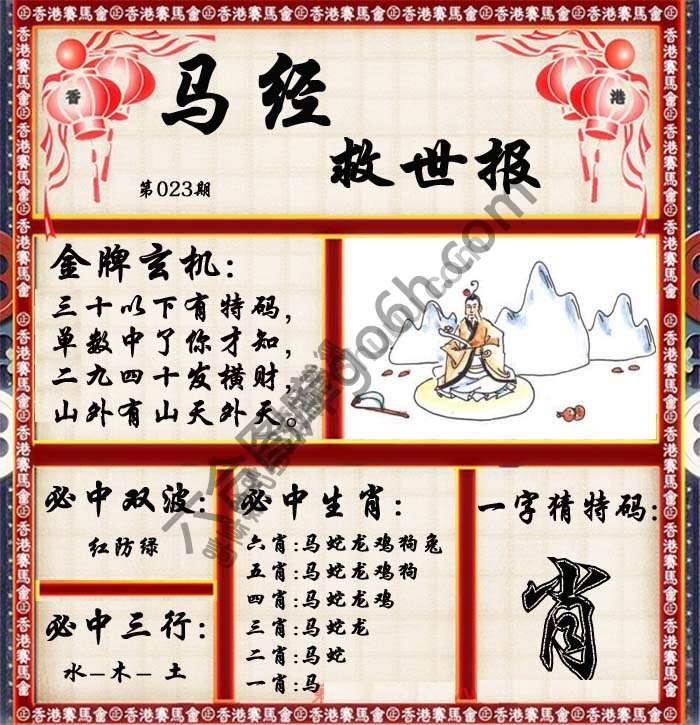 香港賽馬會
香 港
马经
救世报
第023期
金牌玄机:
三十以下有特码,
单数中了你才知,
二九四十发横财,
山外有山天外天。
必中双波:
红防绿
必中三行:
水-木-土
必中生肖:
六肖:马蛇龙鸡狗兔
五肖:马蛇龙鸡狗
四肖:马蛇龙鸡
三肖:马蛇龙
二肖:马蛇
一肖:马
一字猜特码:
肖